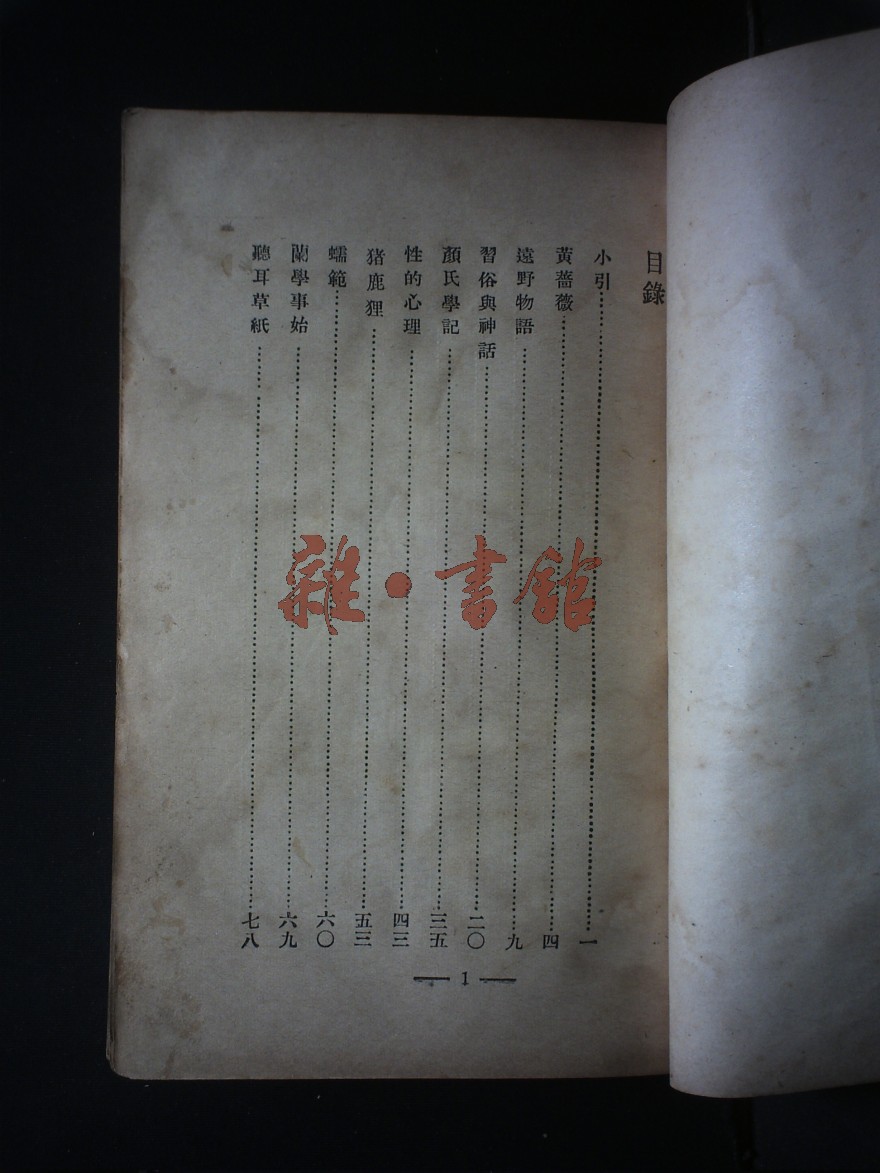 目錄
小引 一
黃薔薇 四
遠野物語 九
習俗與神話 二〇
顏氏學記 三五
性的心理 四三
猪鹿狸 五三
蠕範 六〇
蘭學事始 六九
聽耳草紙 七八
1
雜·書館